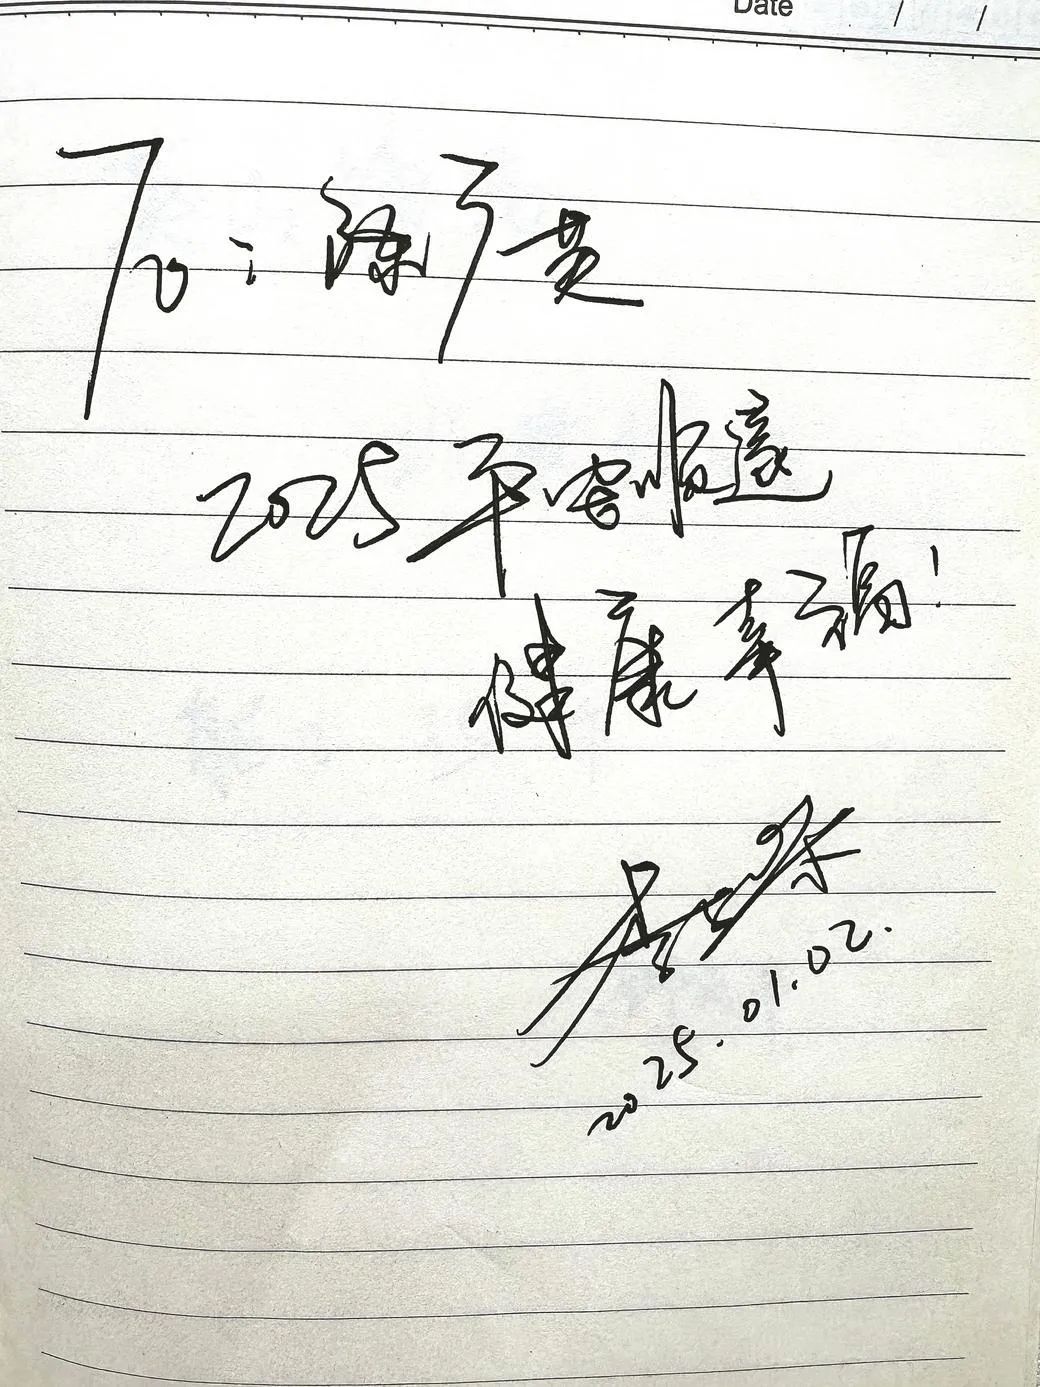 Date / /
To：陈子
2025 平安顺遂
健康幸福！
2025.01.02.